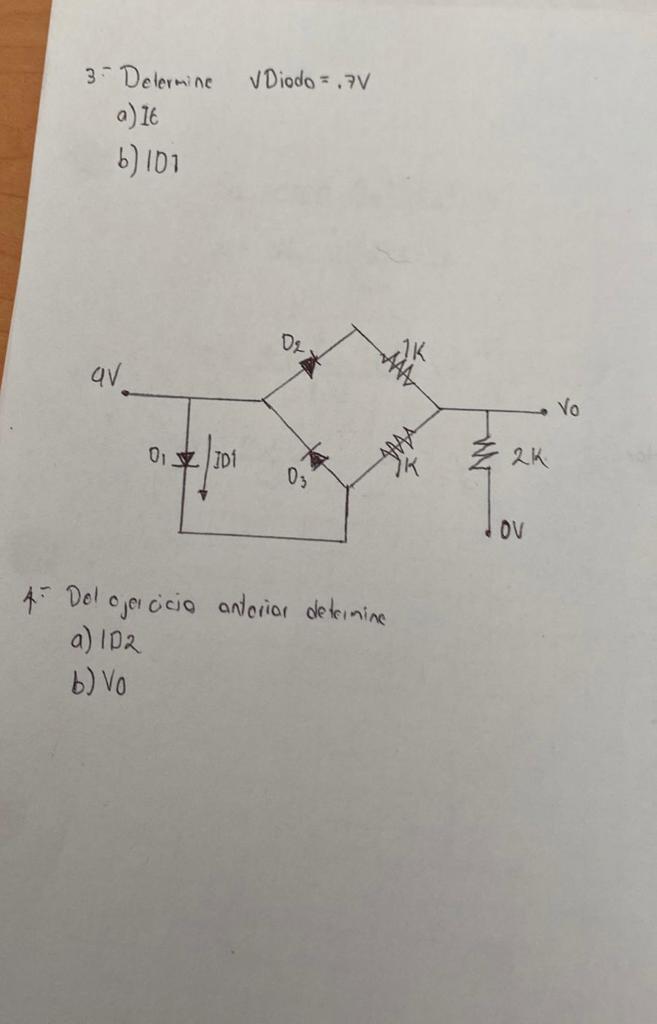 3.- Determine VDiodo = .7V
a) It
b) ID1
D2
1K
9V
Vo
D1
ID1
D3
1K
2K
0V
4.- Del ejercicio anterior determine
a) ID2
b) Vo